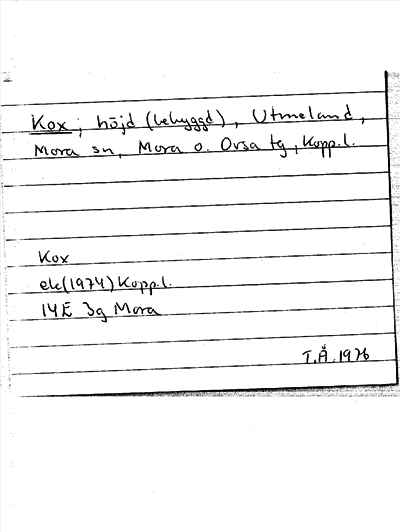 Kox; höjd (bebyggd), Utmeland,
Mora sn, Mora o. Orsa tg, Kopp.l.
Kox
ek(1974) Kopp.l.
14E 3g Mora
T.Å. 1976